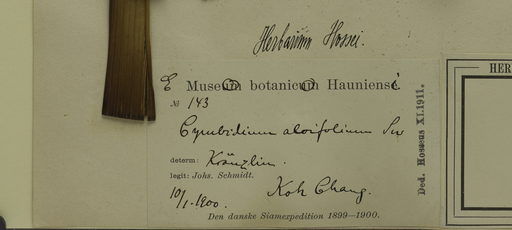 Herbarium Hossei.
E Museum botanicum Hauniensi
№ 143
Cymbidium aloifolium Sw
determ: Kränzlin.
legit: Johs. Schmidt.
10/1.1900. Koh Chang.
Den danske Siamexpedition 1899—1900.
Ded. Hosseus XI.1911.
HER